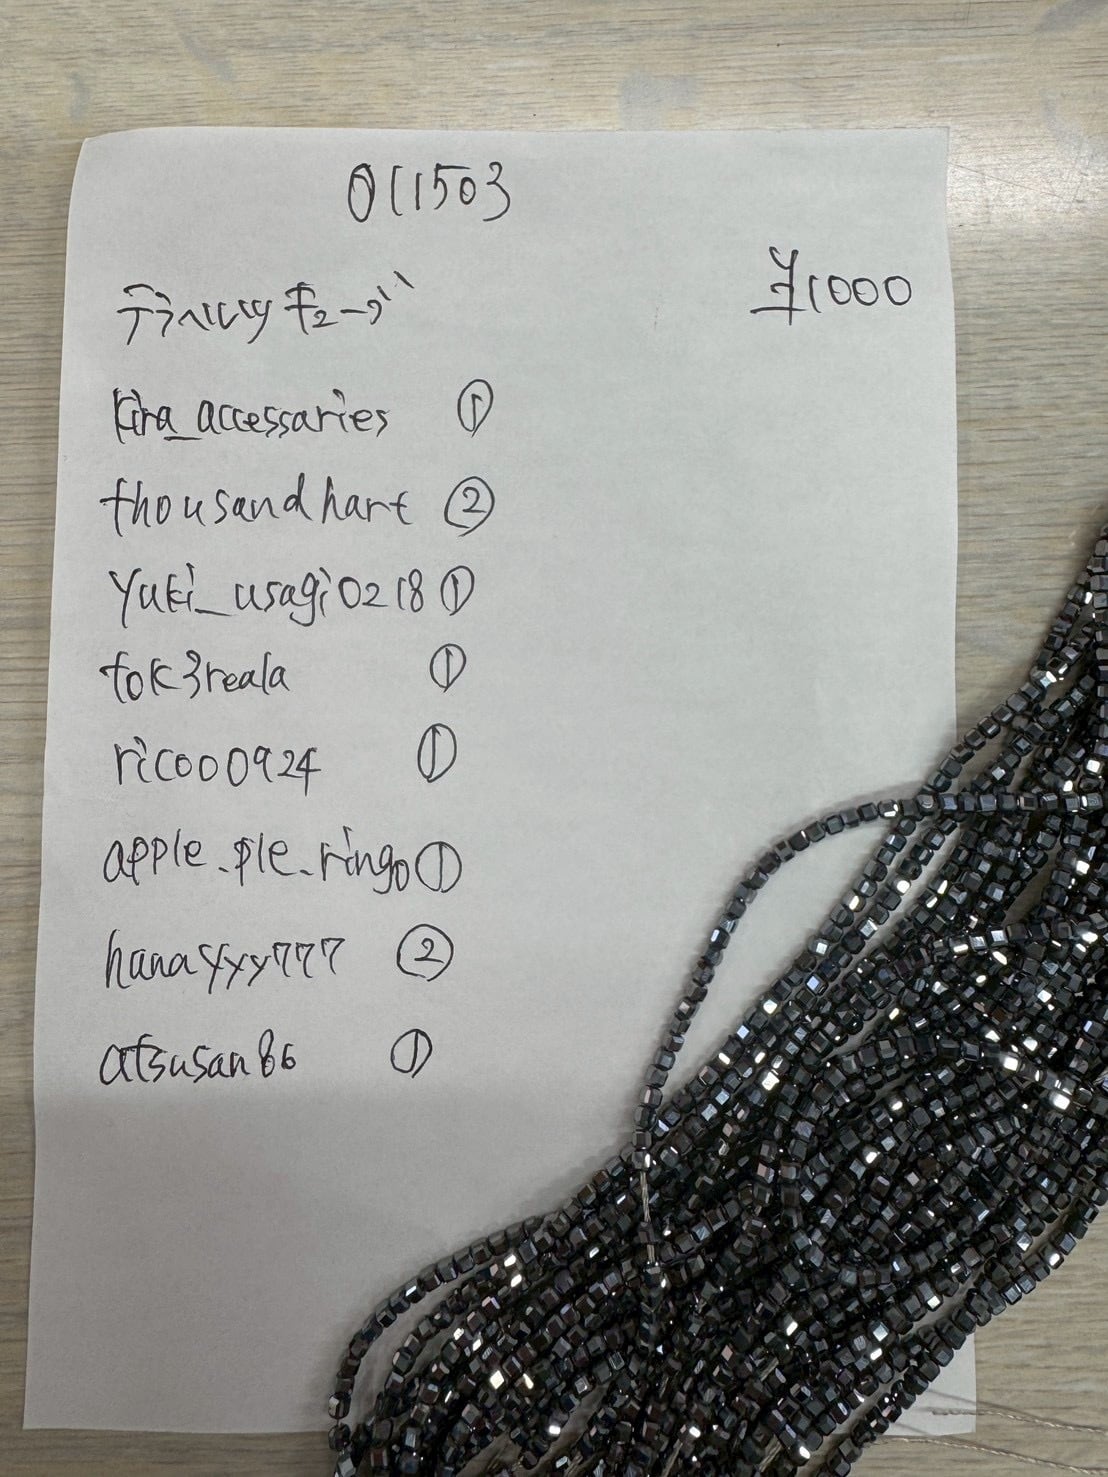 011503
テラヘルツキューブ ¥1000
kira_accessaries ①
thousandhart ②
yuki_usagi0218 ①
tok3reala ①
ricooo924 ①
apple.ple.ringo ①
hanayyy777 ②
atsusan86 ①